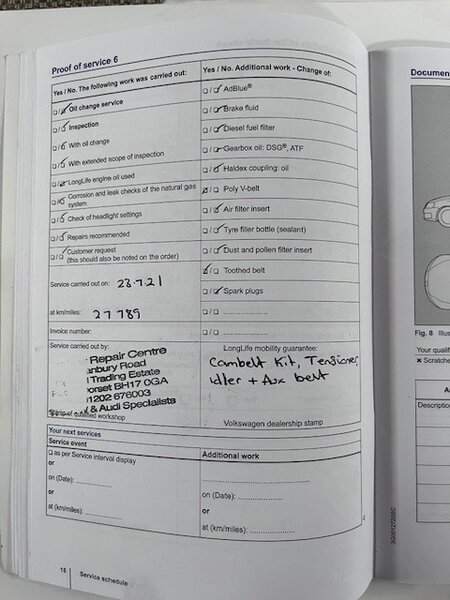 Proof of service 6
Yes / No. The following work was carried out:
Oil change service
Inspection
With oil change
With extended scope of inspection
LongLife engine oil used
Corrosion and leak checks of the natural gas
system
Check of headlight settings
Repairs recommended
Customer request
(this should also be noted on the order)
Service carried out on: 23.7.21
at km/miles: 27789
Invoice number:
Service carried out by:
Repair Centre
anbury Road
Trading Estate
orset BH17 0GA
01202 676003
& Audi Specialists
Stamp of qualified workshop
Yes / No. Additional work - Change of:
AdBlue®
Brake fluid
Diesel fuel filter
Gearbox oil: DSG®, ATF
Haldex coupling: oil
Poly V-belt
Air filter insert
Tyre filler bottle (sealant)
Dust and pollen filter insert
Toothed belt
Spark plugs
LongLife mobility guarantee:
Cambelt Kit, Tensioner,
Idler + Aux belt
Volkswagen dealership stamp
Your next services
Service event
as per Service interval display
or
on (Date):
or
at (km/miles):
Additional work
on (Date):
or
at (km/miles):
16 | Service schedule
Document
Fig. 8 Illus
Your qualif
× Scratche
A
Description